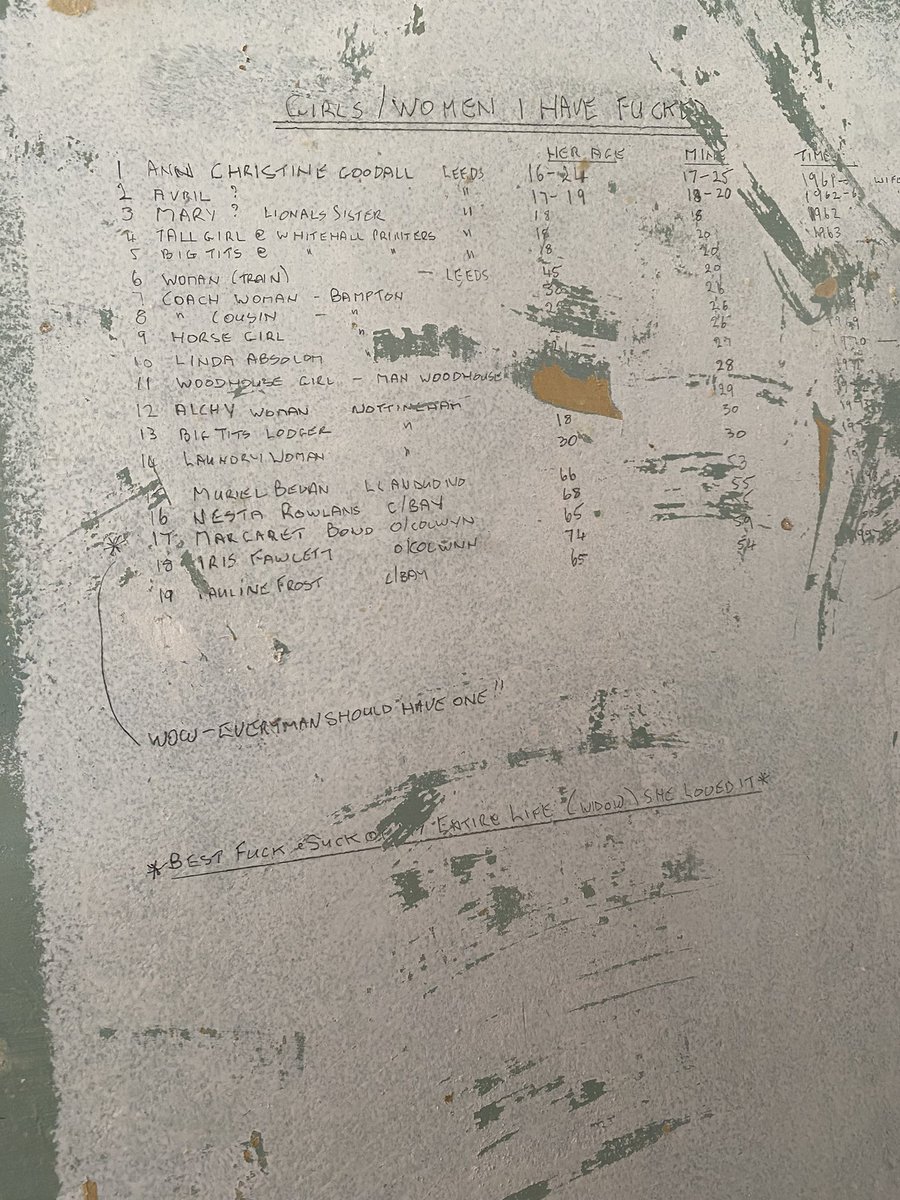 GIRLS/WOMEN I HAVE FUCKED
HER AGE MINE TIME
1 ANN CHRISTINE GOODALL LEEDS 16-24 17-25 1961- WIFE
2 AVRIL ? " 17-19 18-20 1962-6
3 MARY ? LIONALS SISTER " 18 18 1962
4 TALL GIRL @ WHITEHALL PRINTERS " 18 20 1963
5 BIG TITS @ " " 18 20
6 WOMAN (TRAIN) - LEEDS 45 20
7 COACH WOMAN - BAMPTON 26
8 " COUSIN - " 26
9 HORSE GIRL " 26
10 LINDA ABSOLOM 27
11 WOODHOUSE GIRL - MAN WOODHOUSE 28
12 ALCHY WOMAN NOTTINGHAM 29
13 BIG TITS LODGER " 18 30
14 LAUNDRY WOMAN " 30 30
MURIEL BEVAN LLANDUDNO 66 53
16 NESTA ROWLANS C/BAY 68 55
* 17 MARGARET BOND O/COLWYN 65
18 IRIS FAWCETT O/COLWYN 74 59
19 PAULINE FROST C/BAY 65 54
WOW - EVERYMAN SHOULD HAVE ONE"
*BEST FUCK & SUCK ENTIRE LIFE (WIDOW) SHE LOVED IT*